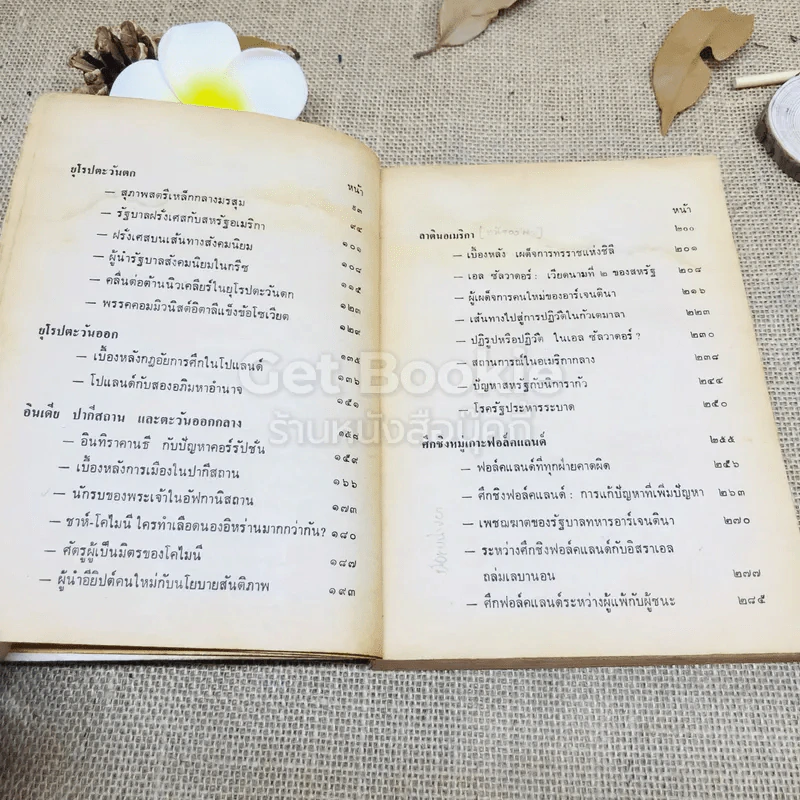 ยุโรปตะวันตก
หน้า
— สุภาพสตรีเหล็กกลางมรสุม ๙๓
— รัฐบาลฝรั่งเศสกับสหรัฐอเมริกา ๙๔
— ฝรั่งเศสบนเส้นทางสังคมนิยม ๑๐๑
— ผู้นำรัฐบาลสังคมนิยมในกรีซ ๑๐๘
— คลื่นต่อต้านนิวเคลียร์ในยุโรปตะวันตก ๑๑๕
— พรรคคอมมิวนิสต์อิตาลีแข็งข้อโซเวียต ๑๒๓
ยุโรปตะวันออก ๑๒๙
— เบื้องหลังกฎอัยการศึกในโปแลนด์ ๑๓๕
— โปแลนด์กับสองอภิมหาอำนาจ ๑๓๖
๑๕๑
อินเดีย ปากีสถาน และตะวันออกกลาง
๑๕๘
— อินทิราคานธี กับปัญหาคอร์รัปชั่น ๑๕๙
— เบื้องหลังการเมืองในปากีสถาน ๑๖๖
— นักรบของพระเจ้าในอัฟกานิสถาน ๑๗๓
— ชาห์-โคไมนี ใครทำเลือดนองอิหร่านมากกว่ากัน? ๑๘๐
— ศัตรูผู้เป็นมิตรของโคไมนี ๑๘๗
— ผู้นำอียิปต์คนใหม่กับนโยบายสันติภาพ ๑๙๓
หน้า
ลาตินอเมริกา ๒๐๐
— เบื้องหลัง เผด็จการทรราชแห่งชิลี ๒๐๑
— เอล ซัลวาดอร์ : เวียดนามที่ ๒ ของสหรัฐ ๒๐๘
— ผู้เผด็จการคนใหม่ของอาร์เจนตินา ๒๑๖
— เส้นทางไปสู่การปฏิวัติในกัวเตมาลา ๒๒๓
— ปฏิรูปหรือปฏิวัติ ในเอล ซัลวาดอร์ ? ๒๓๐
— สถานการณ์ในอเมริกากลาง ๒๓๘
— ปัญหาสหรัฐกับนิการากัว ๒๔๔
— โรครัฐประหารระบาด ๒๕๐
ศึกชิงหมู่เกาะฟอล์คแลนด์ ๒๕๕
— ฟอล์คแลนด์ที่ทุกฝ่ายคาดผิด ๒๕๖
— ศึกชิงฟอล์คแลนด์ : การแก้ปัญหาที่เพิ่มปัญหา ๒๖๓
— เพชฌฆาตของรัฐบาลทหารอาร์เจนตินา ๒๗๐
— ระหว่างศึกชิงฟอล์คแลนด์กับอิสราเอล
ถล่มเลบานอน ๒๗๗
— ศึกฟอล์คแลนด์ระหว่างผู้แพ้กับผู้ชนะ ๒๘๕
Get Bookie
ร้านหนังสือบุ๊คกี้